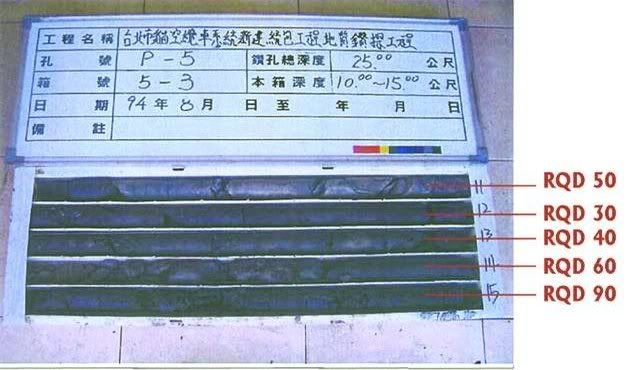 工程名稱 台北市貓空纜車系統新建統包工程地質鑽探工程
孔號 P-5 鑽孔總深度 25.00 公尺
箱號 5-3 本箱深度 10.00~15.00 公尺
日期 94年8月 日至 年 月 日
備註
11 RQD 50
12 RQD 30
13 RQD 40
14 RQD 60
15 RQD 90